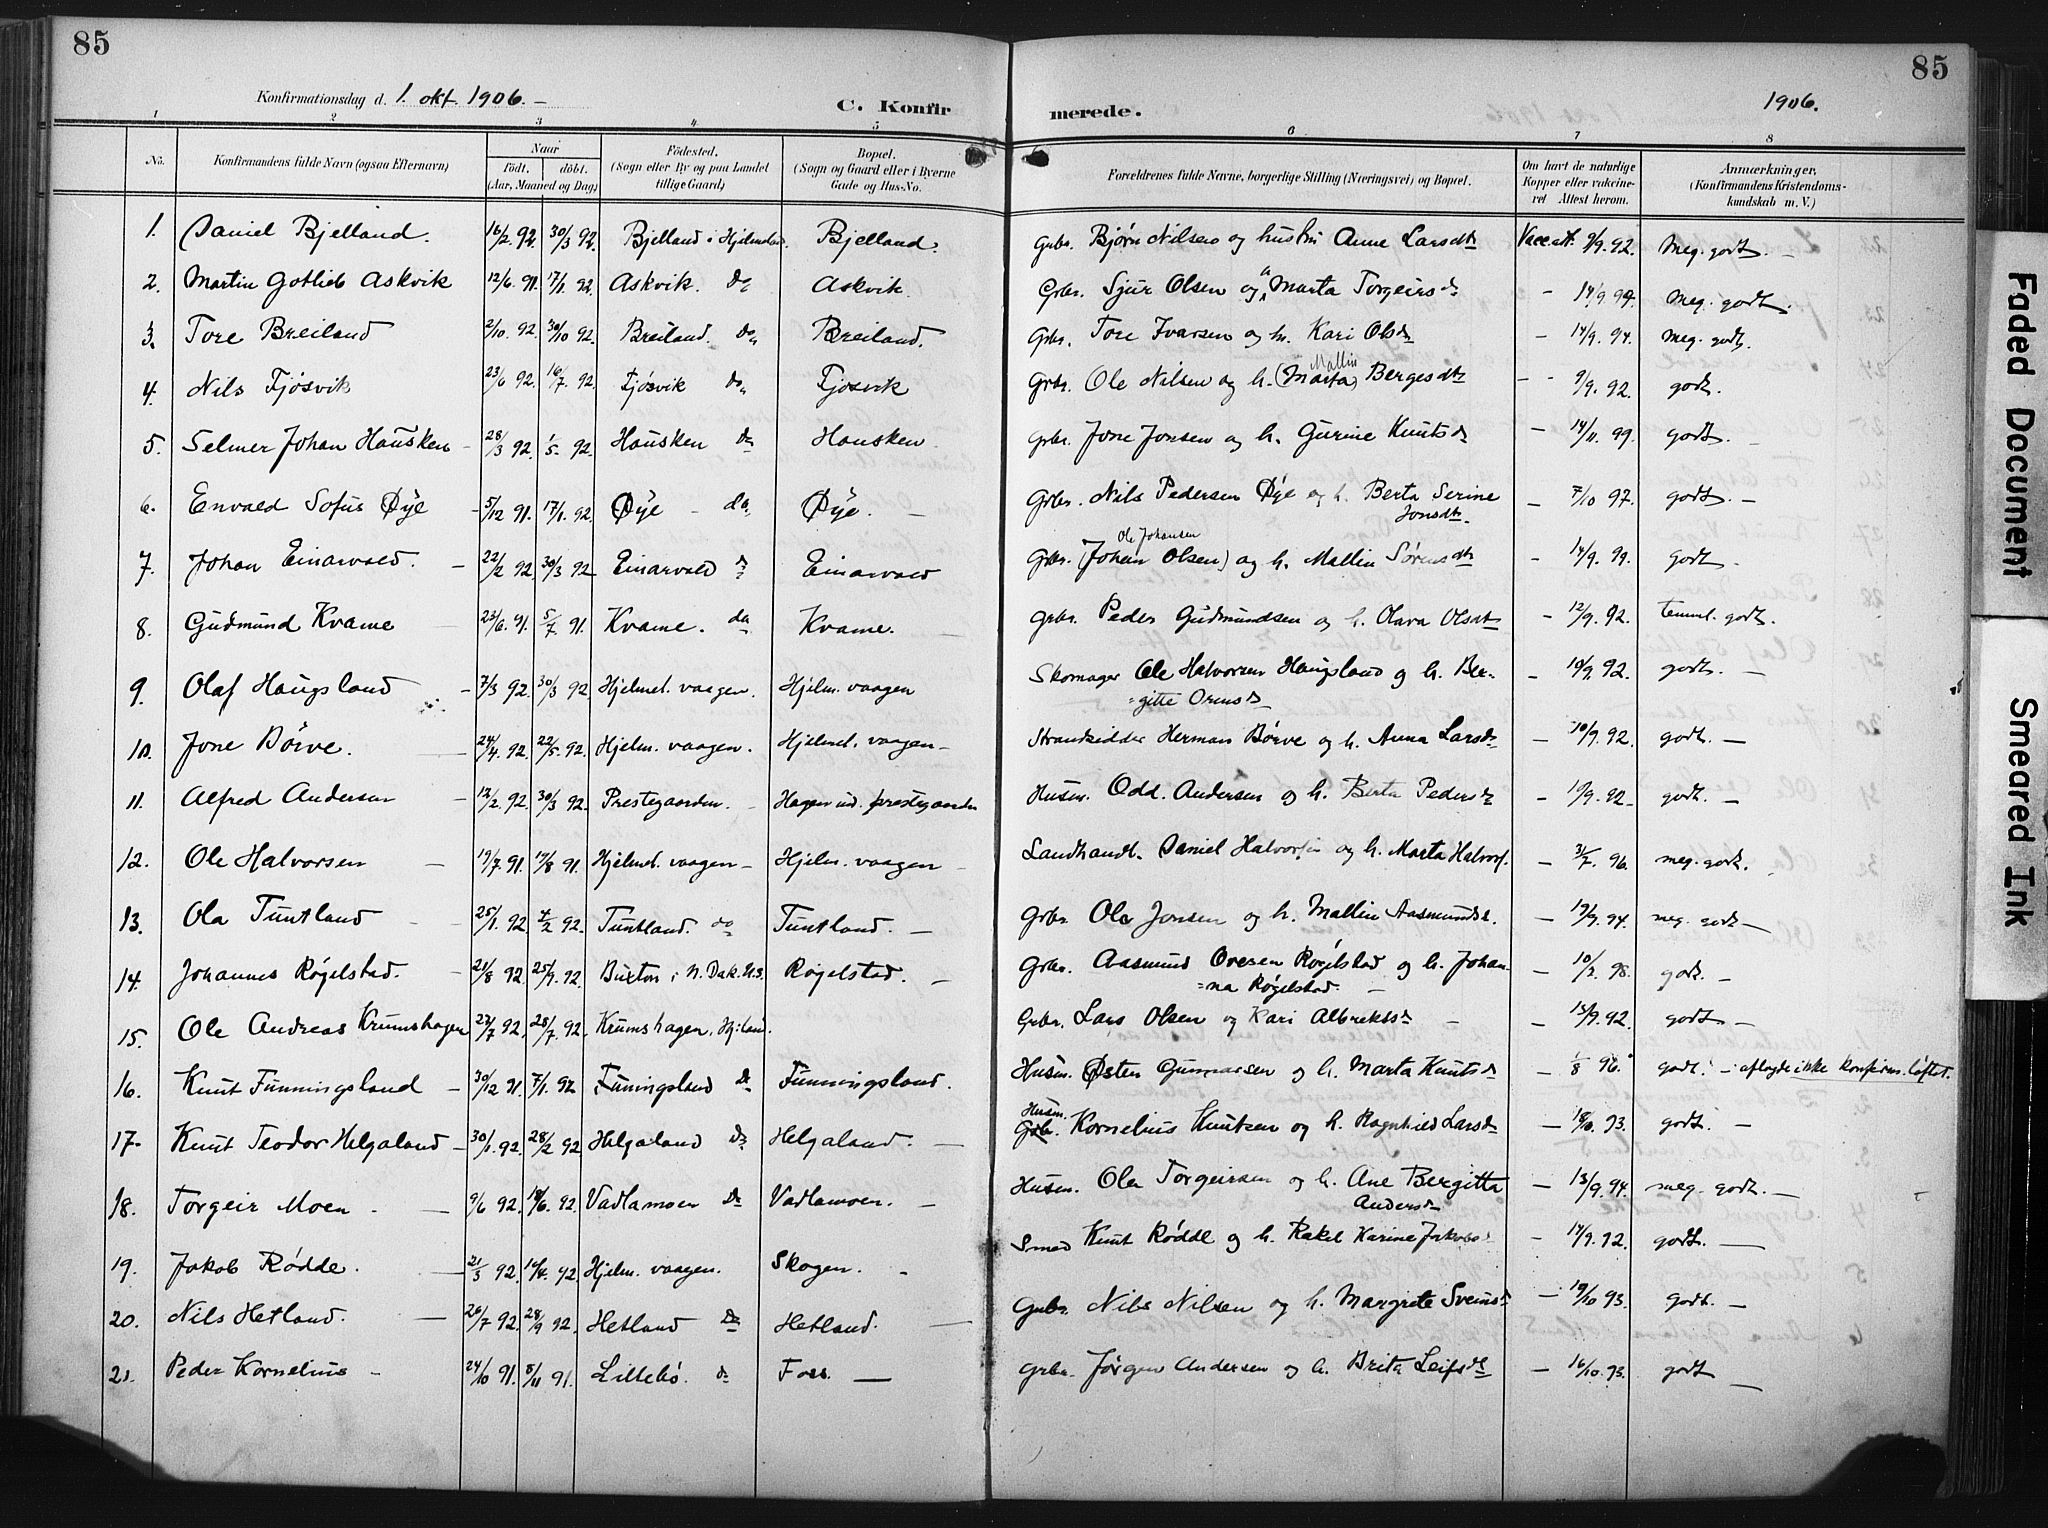 85
85
Konfirmationsdag d. 1. okt. 1906. –
C. Konfirmerede.
1906.
1 2 3 4 5 6 7 8
No.
Konfirmandens fulde Navn (ogsaa Efternavn)
Naar
födt. döbt.
(Aar, Maaned og Dag)
Födested.
(Sogn eller By og paa Landet
tillige Gaard)
Bopæl.
(Sogn og Gaard eller i Byerne
Gade og Hus-No.
Forældrenes fulde Navne, borgerlige Stilling (Næringsvei) og Bopæl.
Om havt de naturlige
Kopper eller vakcine-
ret Attest herom.
Anmærkninger,
(Konfirmandens Kristendoms-
kundskab m. V.)
1. Daniel Bjelland. 16/2 92. 30/3 92. Bjelland i Hjelmeland Bjelland. Grbr. Bjørn Nilsen og hustru Anne Larsdtr Vacc.att. 9/9. 92. Meg. godt. –
2. Martin Gotlieb Askvik 12/6. 91. 17/1. 92. Askvik. do Askvik. Grbr. Sjur Olsen og h Marta Torgeirsd. – 14/9. 94. Meg. godt.
3. Tore Breiland 2/10. 92. 30/10 92. Breiland. do Breiland. Grbr. Tore Ivarsen og h. Kari Olsd. – 14/9. 94. meg. godt.
4. Nils Fjøsvik 23/6 92. 16/7. 92. Fjøsvik do Fjøsvik Grbr. Ole Nilsen og h. (Marta) Mallin Bergesdtr – – 9/9. 92. godt.
5. Selmer Johan Hausken – 28/3 92. 1/5. 92. Hausken do Hausken. Grbr. Jone Jonsen og h. Gurine Knutsd. – 14/11. 99. godt. –
6. Envald Sofus Øye – 5/12 91. 17/1. 92. Øye – do Øye. – Grbr. Nils Pedersen Øye og h. Berta Serine
Jonsdtr. – 7/10 97. godt. –
7. Johan Einarvold. – 22/2 92. 30/3 92 Einarvold do Einarvold Grbr. (Johan Olsen) Ole Johansen og h. Mallin Sørensdtr – 14/9. 99. godt.
8. Gudmund Kvame 23/6. 91. 5/7 91. Kvame. do Kvame. – Grbr. Peder Gudmundsen og h. Olava Olsdtr – 12/9. 92. temmel. godt.
9. Olaf Haugsland – 7/3 92. 30/3 92. Hjelmel. vaagen. Hjelm. vaagen Skomager Ole Halvorsen Haugsland og h. Ber-
=gitte Ormsd. – 10/9. 92. godt. –
10. Jone Börve. – 24/4. 92. 22/5. 92. Hjelm. vaagen. Hjelmel. vaagen – Strandsidder Herman Børve og h. Anna Larsd. – 10/9. 92. godt. –
11. Alfred Andersen – 12/2. 92. 30/3 92. Prestegaarden. – Hagen und. prestegaarden Husm. Odd. Andersen og h. Berta Pedersd. – 10/9. 92. godt. –
12. Ole Halvorsen – 19/7. 91. 19/8 91. Hjelmel. vaagen – Hjelm. vaagen – Landhandl. Daniel Halvorsen og h. Marta Halvors. – 3/7. 96. meg. godt.
13. Ola Tuntland – 25/1. 92. 4/2 92. Tuntland. do Tuntland. – Grbr. Ole Jonsen og h. Mallin Aasmundsd. – 19/9. 94. meg. godt –
14. Johannes Røgelstad. – 21/8 92. 25/9. 92. Buxton i N. Dak. U.S. Røgelstad. – Grbr. Aasmund Oversen Røgelstad og h. Johan-
=na Røgelstad. – 10/2. 98. godt. –
15. Ole Andreas Krumshagen 23/7 92. 28/7. 92. Krumshagen, Hj:land. Grbr. Lars Olsen og Kari Albrektsd. – – 13/9. 92. godt. –
16. Knut Funningsland – 30/12 91. 7/1. 92 Funingsland do Funningsland. Husm. Østen Gunnarsen og h. Marta Knutsd. – 1/8 96. godt. – aflagde ikke konfirm. löftet.
17. Knut Teodor Helgaland – 30/1. 92. 28/2 92 Helgaland do Helgaland. – Husm. Grbr. Kornelius Knutsen og h. Ragnhild Larsd. – 18/10. 93. godt. –
18. Torgeir Moen. – 9/6 92. 19/6. 92. Vadlamoen do Vadlamoen. – Husm. Ole Torgeirsen og h. Ane Bergitta
Andersd. – 13/9. 94. meg. godt. –
19. Jakob Rödde. – 21/3 92. 14/4. 92. Hjelm. vaagen. Skogen. – Smed Knut Røddl og h. Rakel Karine Jakobsd. 14/9. 92. godt. –
20. Nils Hetland. – 26/7 92. 28/9 92. Hetland do Hetland. – Grbr. Nils Nilsen og h. Margrete Sveinsd. – 19/10 93. godt. –
21. Peder Kornelius – 24/10 91. 8/11 91. Lillebö. do Foss. – Grbr. Jørgen Andersen og h. Brita Leifsdtr – 16/10. 93. godt –
Faded Document
Smeared Ink